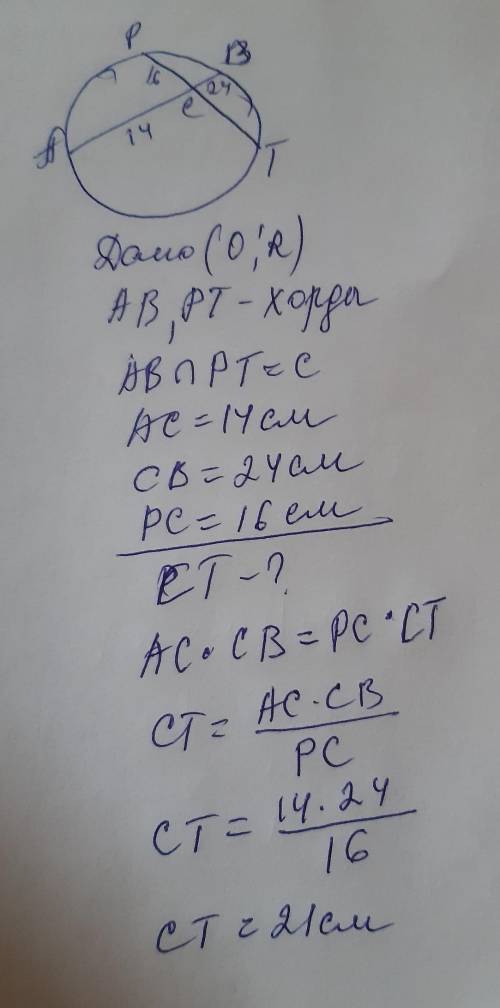 P
B
16
24
C
14
A
T
Дано (O; R)
AB, PT - хорды
AB ∩ PT = C
AC = 14 см
CB = 24 см
PC = 16 см
CT - ?
AC · CB = PC · CT
CT = AC · CB / PC
CT = 14 · 24 / 16
CT = 21 см